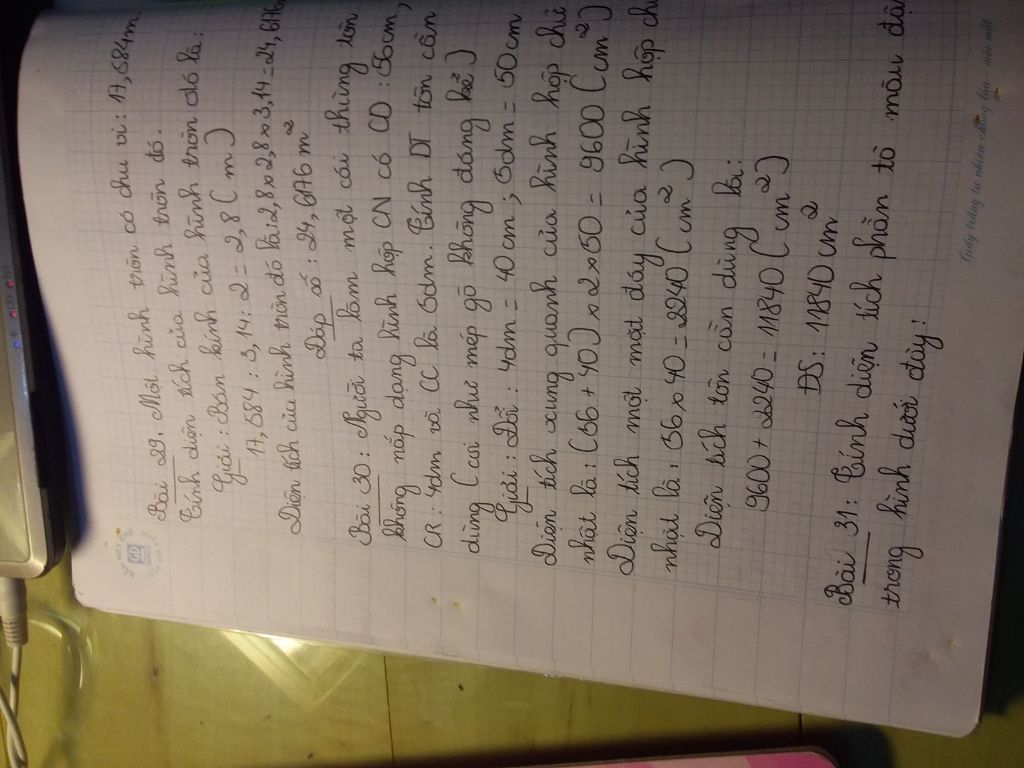 Bài 29: Một hình tròn có chu vi: 17,584m
Tính diện tích của hình tròn đó.
Giải: Bán kính của hình tròn đó là:
17,584 : 3,14 : 2 = 2,8 (m)
Diện tích của hình tròn đó là: 2,8 x 2,8 x 3,14 = 24,6176
Đáp số: 24,6176 m²
Bài 30: Người ta làm một cái thùng tôn
không nắp dạng hình hộp CN có CD: 56cm,
CR: 4dm và CC là 5dm. Tính DT tôn cần
dùng (coi như mép gò không đáng kể)
Giải: Đổi: 4dm = 40cm; 5dm = 50cm
Diện tích xung quanh của hình hộp chữ
nhật là: (56 + 40) x 2 x 50 = 9600 (cm²)
Diện tích một mặt đáy của hình hộp ch
nhật là: 56 x 40 = 2240 (cm²)
Diện tích tôn cần dùng là:
9600 + 2240 = 11840 (cm²)
ĐS: 11840 cm²
Bài 31: Tính diện tích phần tô màu đậ
trong hình dưới đây!